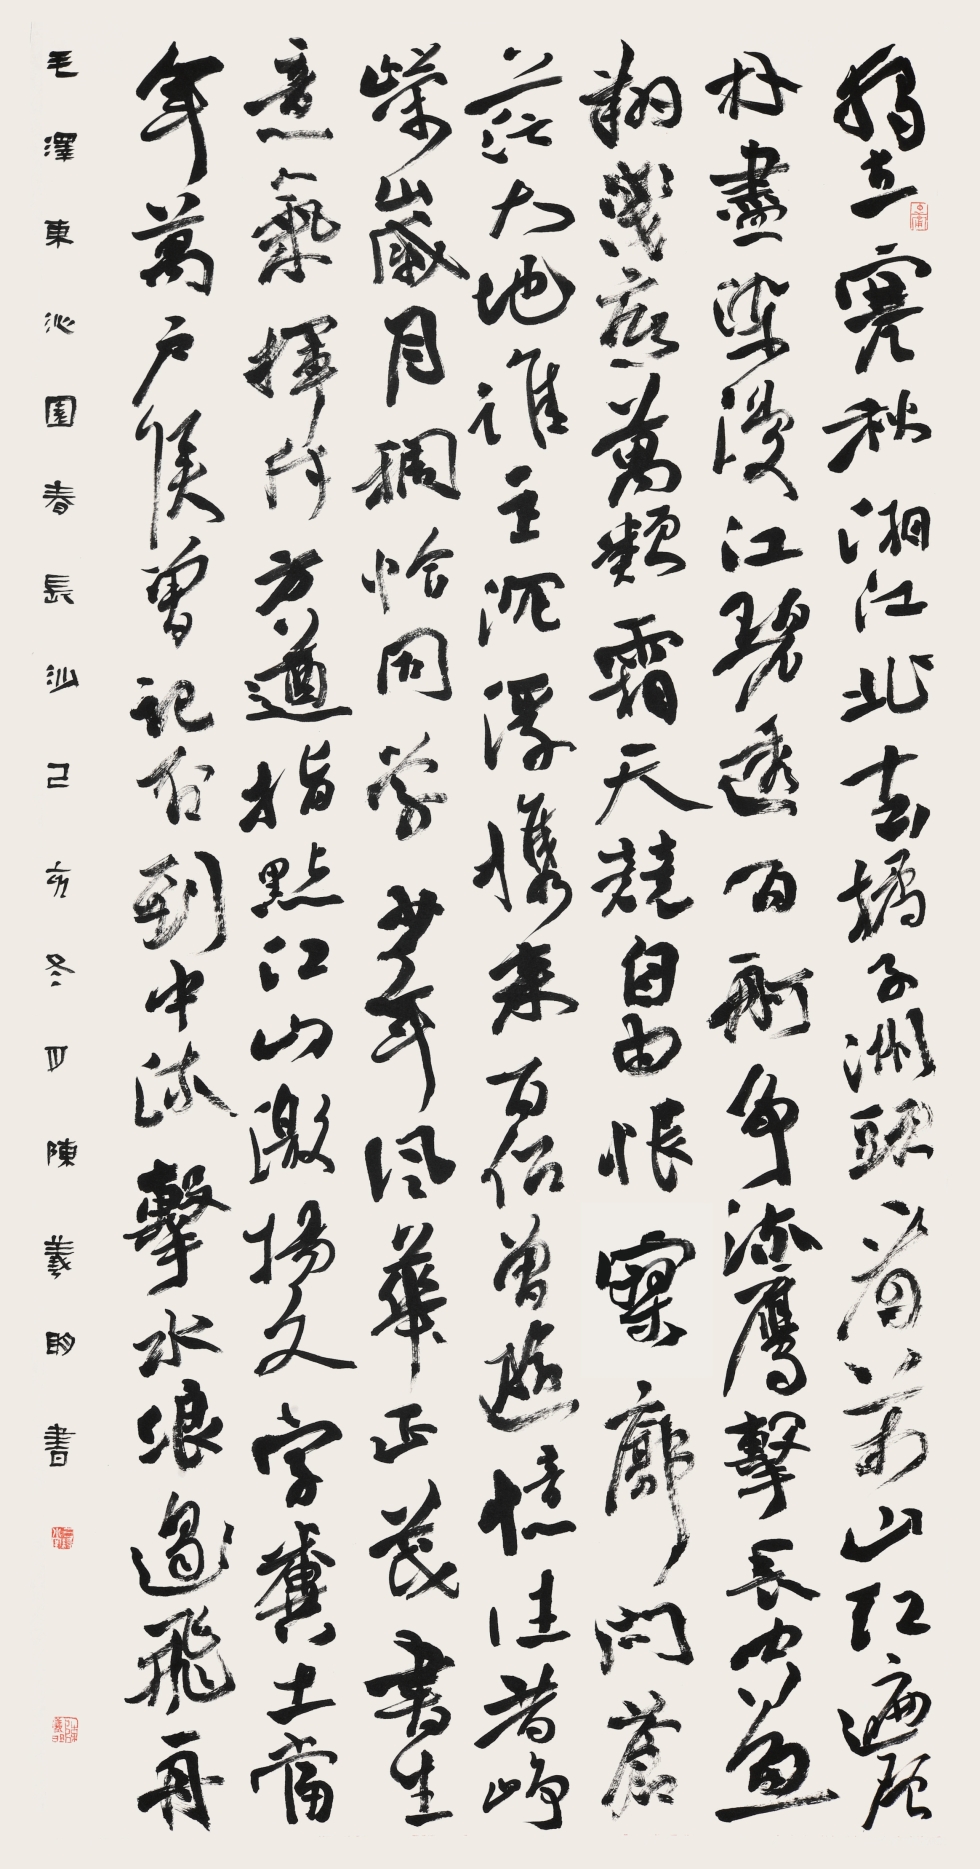 獨立寒秋湘江北去橘子洲頭看萬山紅遍層
林盡染漫江碧透百舸爭流鷹擊長空魚
翔淺底萬類霜天競自由悵寥廓問蒼
茫大地誰主沉浮攜來百侶曾遊憶往昔崢
嶸歲月稠恰同學少年風華正茂書生
意氣揮斥方遒指點江山激揚文字糞土當
年萬戶侯曾記否到中流擊水浪遏飛舟
毛澤東沁園春長沙己亥冬月陳羲明書